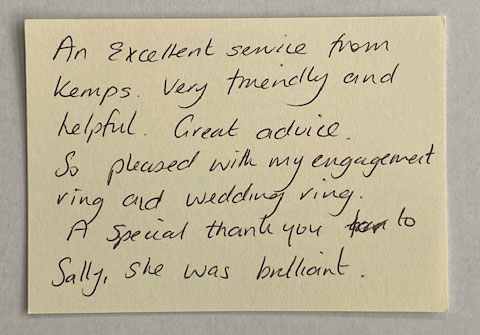 An Excellent service from
Kemps. Very friendly and
helpful. Great advice.
So pleased with my engagement
ring and wedding ring.
A special thank you to
Sally, she was brilliant.